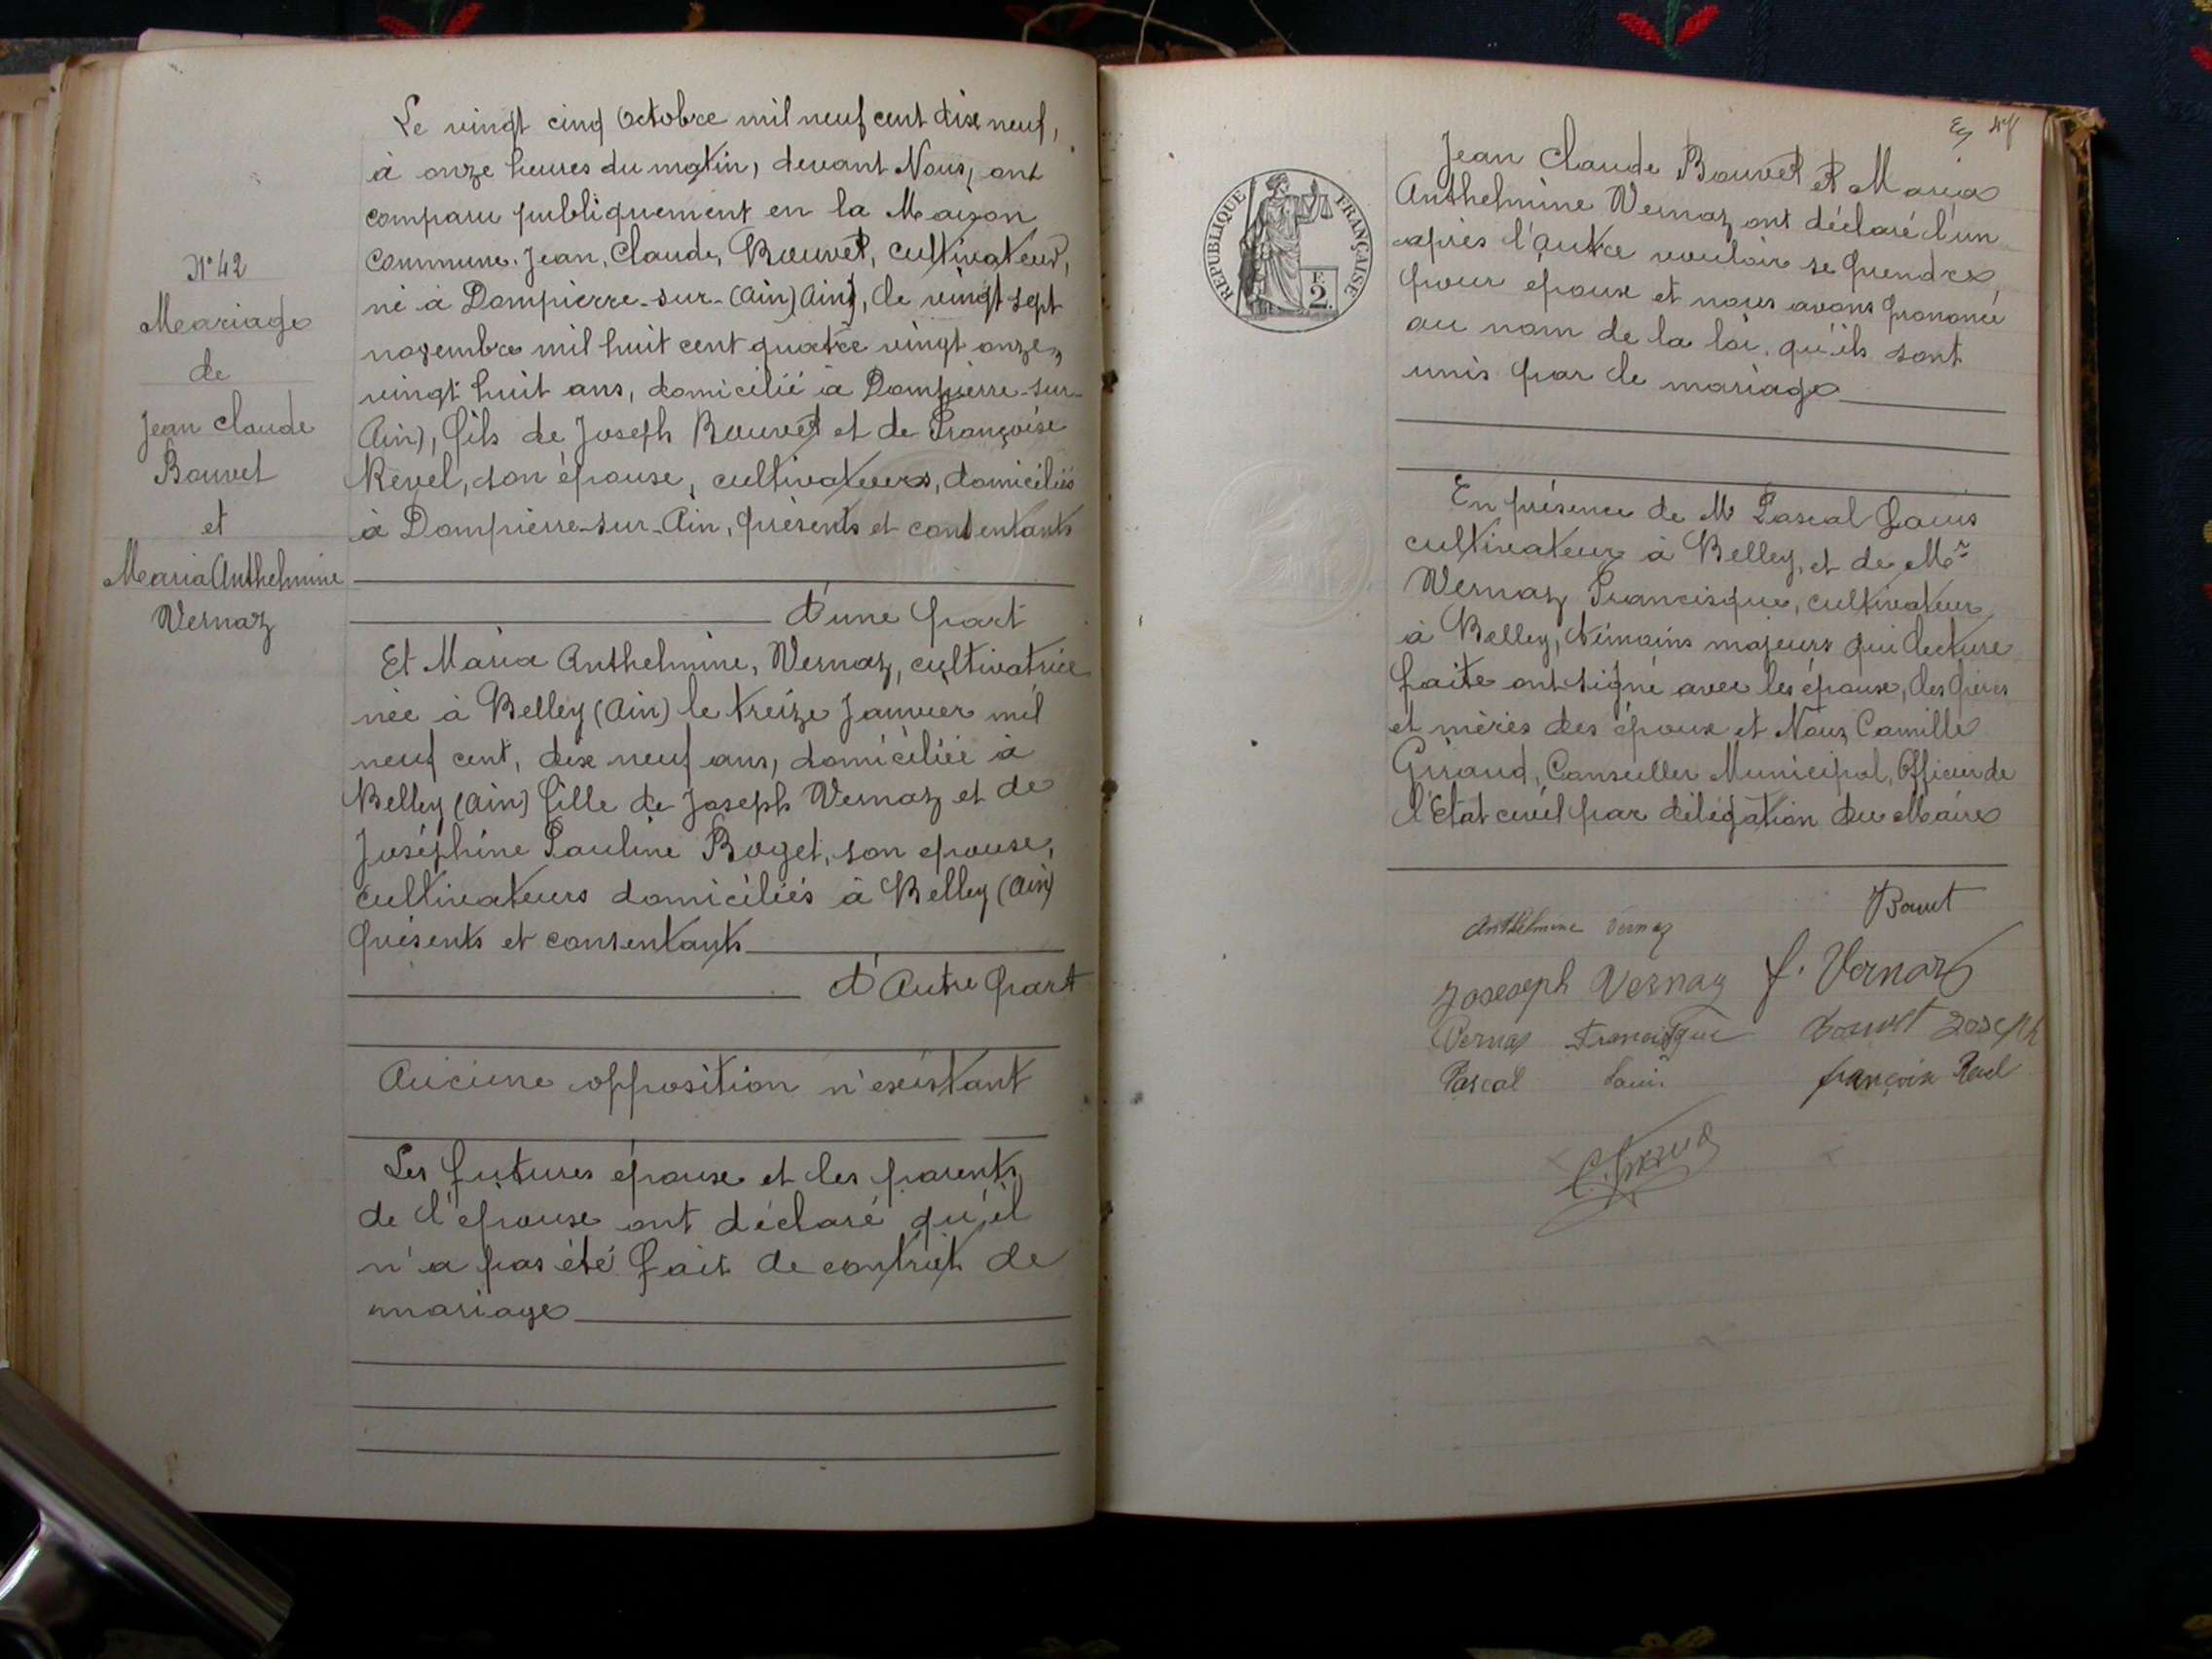 N° 42
Mariage
de
Jean Claude
Bouvet
et
Maria Anthelmine
Vernaz
Le vingt cinq Octobre mil neuf cent dix neuf,
à onze heures du matin, devant Nous, ont
comparu publiquement en la Maison
Commune. Jean, Claude, Bouvet, cultivateur,
né à Dompierre-sur-(Ain) Ain), le vingt sept
novembre mil huit cent quatre vingt onze,
vingt huit ans, domicilié à Dompierre-sur-
Ain), fils de Joseph Bouvet et de Françoise
Revel, son épouse, cultivateurs, domiciliés
à Dompierre-sur-Ain, présents et consentants
d'une part
Et Maria Anthelmine, Vernaz, cultivatrice
née à Belley (Ain) le treize Janvier mil
neuf cent, dix neuf ans, domiciliée à
Belley (Ain) fille de Joseph Vernaz et de
Joséphine Pauline Boget, son epouse,
cultivateurs domiciliés à Belley (Ain)
présents et consentants
d'Autre part
Aucune opposition n'existant
Les futures époux et les parents
de l'épouse ont déclaré qu'il
n'a pas été fait de contrat de
mariage
REPUBLIQUE FRANÇAISE
2 F.
Jean Claude Bouvet et Maria
Anthelmine Vernaz ont déclaré l'un
après l'autre vouloir se prendre,
pour epoux et nous avons prononcé
au nom de la loi, qu'ils sont
unis par le mariage
En présence de M Pascal Louis
cultivateur à Belley, et de Mr
Vernaz Francisque, cultivateur
à Belley, témoins majeurs qui lecture
faite ont signé avec les époux, les pères
et mères des époux et Nous Camille
Giraud, Conseiller Municipal, Officier de
l'Etat civil par délégation du Maire
Anthelmine Vernaz Bouvet
Joseseph Vernaz J. Vernaz
Vernaz Francisque Bouvet Joseph
Pascal Louis françoise Revel
C. Giraud